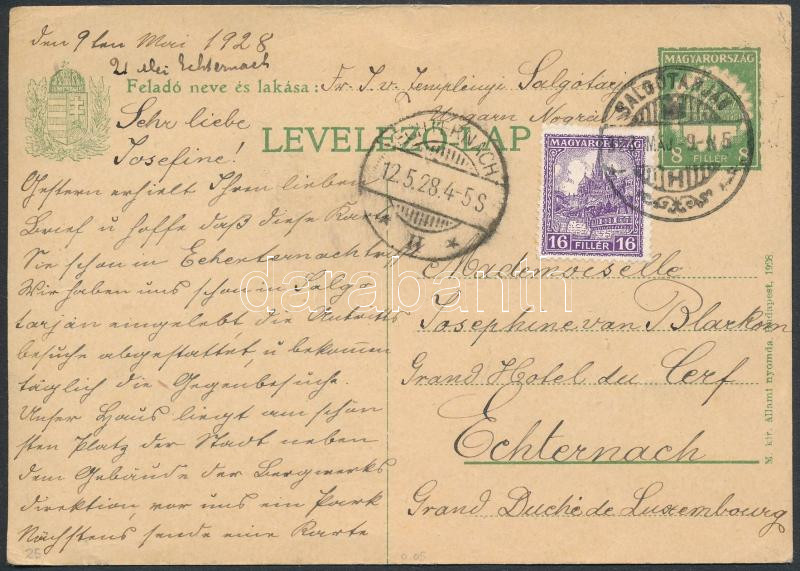 den 9ten Mai 1928
Echternach
Feladó neve és lakása: Fr. I. v. Templényi Salgótarj
Ungarn Nograd
MAGYARORSZÁG
8 FILLÉR 8
SALGÓTARJÁN
MAJ. 9-N 5
LEVELEZŐ-LAP
ECHTERNACH
12.5.28.4-5S
MAGYARORSZÁG
16 FILLÉR 16
Sehr liebe
Josefine!
Gestern erhielt Ihren lieben
Brief u hoffe daß diese Karte
Sie schon in Echerternach trifft
Wir haben uns schon in Salgo
tarján eingelebt, die Antritts
besuche abgestattet, u bekommen
täglich die Gegenbesuche.
Unser Haus liegt am schön
sten Platz der Stadt neben
dem Gebäude der Bergwerks
direktion, vor uns ein Park
Nächstens sende eine Karte
Mademoiselle
Josephine van Blarkom
Grand Hotel du Cerf
Echternach
Grand Duché de Luxembourg
M. kir. Állami nyomda, Budapest, 1928.
darabanth
25
0.05